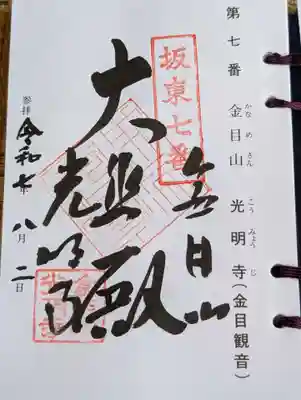 第七番 金目山 光明寺(金目観音)
かなめさん こうみょうじ
坂東七番
金目山
大悲殿
光明寺
参拝 令和七年八月二日